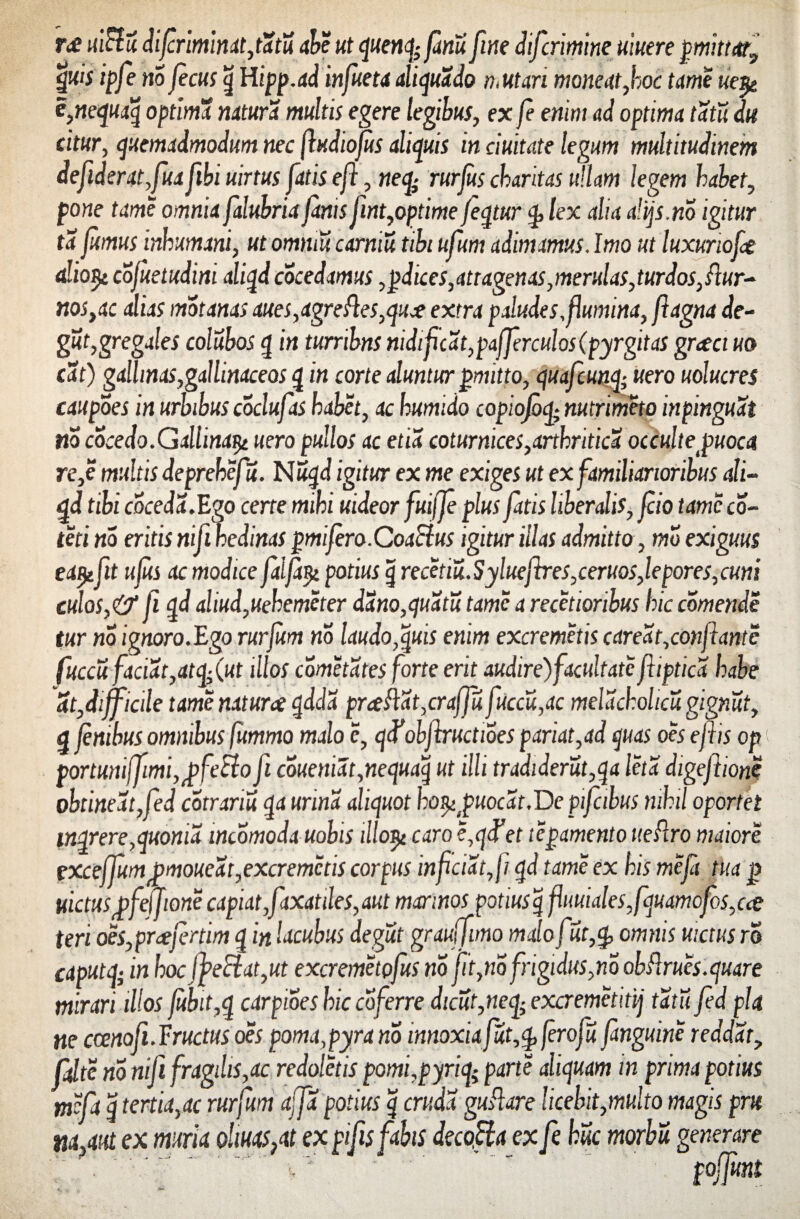 ræ uictũ discriminat,tãtũ abẽ ut quenq; sanũ sine discrimine uiuere pmittar,
quis ipse nõ secus q̃ Hipp.ad insueta aliquãdo mutari moneat,hoc tamẽ ueꝝ
ẽ,nequaq̃ optimã naturã multis egere legibus, ex se enim ad optima tãtũ du
citur, quemadmodum nec studiosus aliquis in ciuitate legum multitudinem
desiderat,sua sibi uirtus satis est, neq; rursus charitas ullam legem habet,
pone tamẽ omnia salubria sanis sint,optime seqtur ꝙ lex alia alijs.nõ igitur
tã sumus inhumani, ut omniũ carniũ tibi usum adimamus. Imo ut luxuriosæ
alioꝝ cõsuetudini aliqd cõcedamus ,pdices,attagenas,merulas,turdos,stur-
nos,ac alias mõtanas aues,agrestes,quæ extra paludes,flumina, stagna de-
gũt,gregales colũbos q in turribns nidificãt,passerculos (pyrgitas græci uo
cãt) gallinas,gallinaceos q in corte aluntur pmitto, quascunq; uero uolucres
caupões in urbibus cõclusas habẽt, ac humido copiosoq; nutrimẽto inpinguãt
nõ cõcedo.Gallinaꝝ uero pullos ac etiã coturnices,arthriticã occulte ꝓuoca
re,ẽ multis deprehẽsũ. Nũqd igitur ex me exiges ut ex familiarioribus ali-
qd tibi cõcedã.Ego certe mihi uideor fuisse plus satis liberalis, scio tamẽ cõ-
tẽti nõ eritis nisi hedinas pmisero.Coactus igitur illas admitto , mõ exiguus
eaꝝ sit usus ac modice salsaꝝ potius q̃ recẽtiũ.Syluestres,ceruos,lepores,cuni
culos,& si qd aliud,uehemẽter dãno,quãtũ tamẽ a recẽtioribus hic cõmendẽ
tur nõ ignoro.Ego rursum nõ laudo,quis enim excremẽtis careãt,constantẽ
succũ faciãt,atq; (ut illos cõmẽtãtes forte erit audire) facultatẽ stipticã habe
ãt,difficile tamẽ naturæ qddã præstãt,crassũ succũ,ac melãcholicũ gignũt,
q senibus omnibus summo malo ẽ, qđ obstructiões pariat,ad quas oẽs estis op
portunissimi, ꝓfecto si cõueniãt,nequaq̃ ut illi tradiderũt,qa lẽtã digestionẽ
obtineãt,sed cõtrariũ qa urinã aliquot hoꝝ ꝓuocãt.De piscibus nihil oportet
inqrere,quoniã incõmoda uobis illoꝝ caro ẽ,qđ et tẽpamento uestro maiorẽ
excessum pmoueãt,excremẽtis corpus inficiãt,si qd tamẽ ex his mẽsa tua p
uictus ꝓfessionẽ capiat,saxatiles,aut marinos potius q̃ fluuiales,squamosos,cæ
teri oẽs,præsertim q in lacubus degũt grauissimo malo sũt,ꝙ omnis uictus rõ
caputq; in hoc spectat,ut excremẽtosus nõ sit,nõ frigidus,nõ obstruẽs.quare
mirari illos subit,q carpiões hic cõferre dicũt,neq; excremẽtitij tãtũ sed pla
ne cœnosi.Fructus oẽs poma,pyra nõ innoxia sũt,ꝙ serosũ sanguinẽ reddãt,
saltẽ nõ nisi fragilis,ac redolẽtis pomi,pyriq; partẽ aliquam in prima potius
mẽsa q̃ tertia,ac rursum assã potius q̃ crudã gustare licebit,multo magis pru
na,aut ex muria oliuas,at ex pisis fabis decocta ex se hũc morbũ generare
possunt